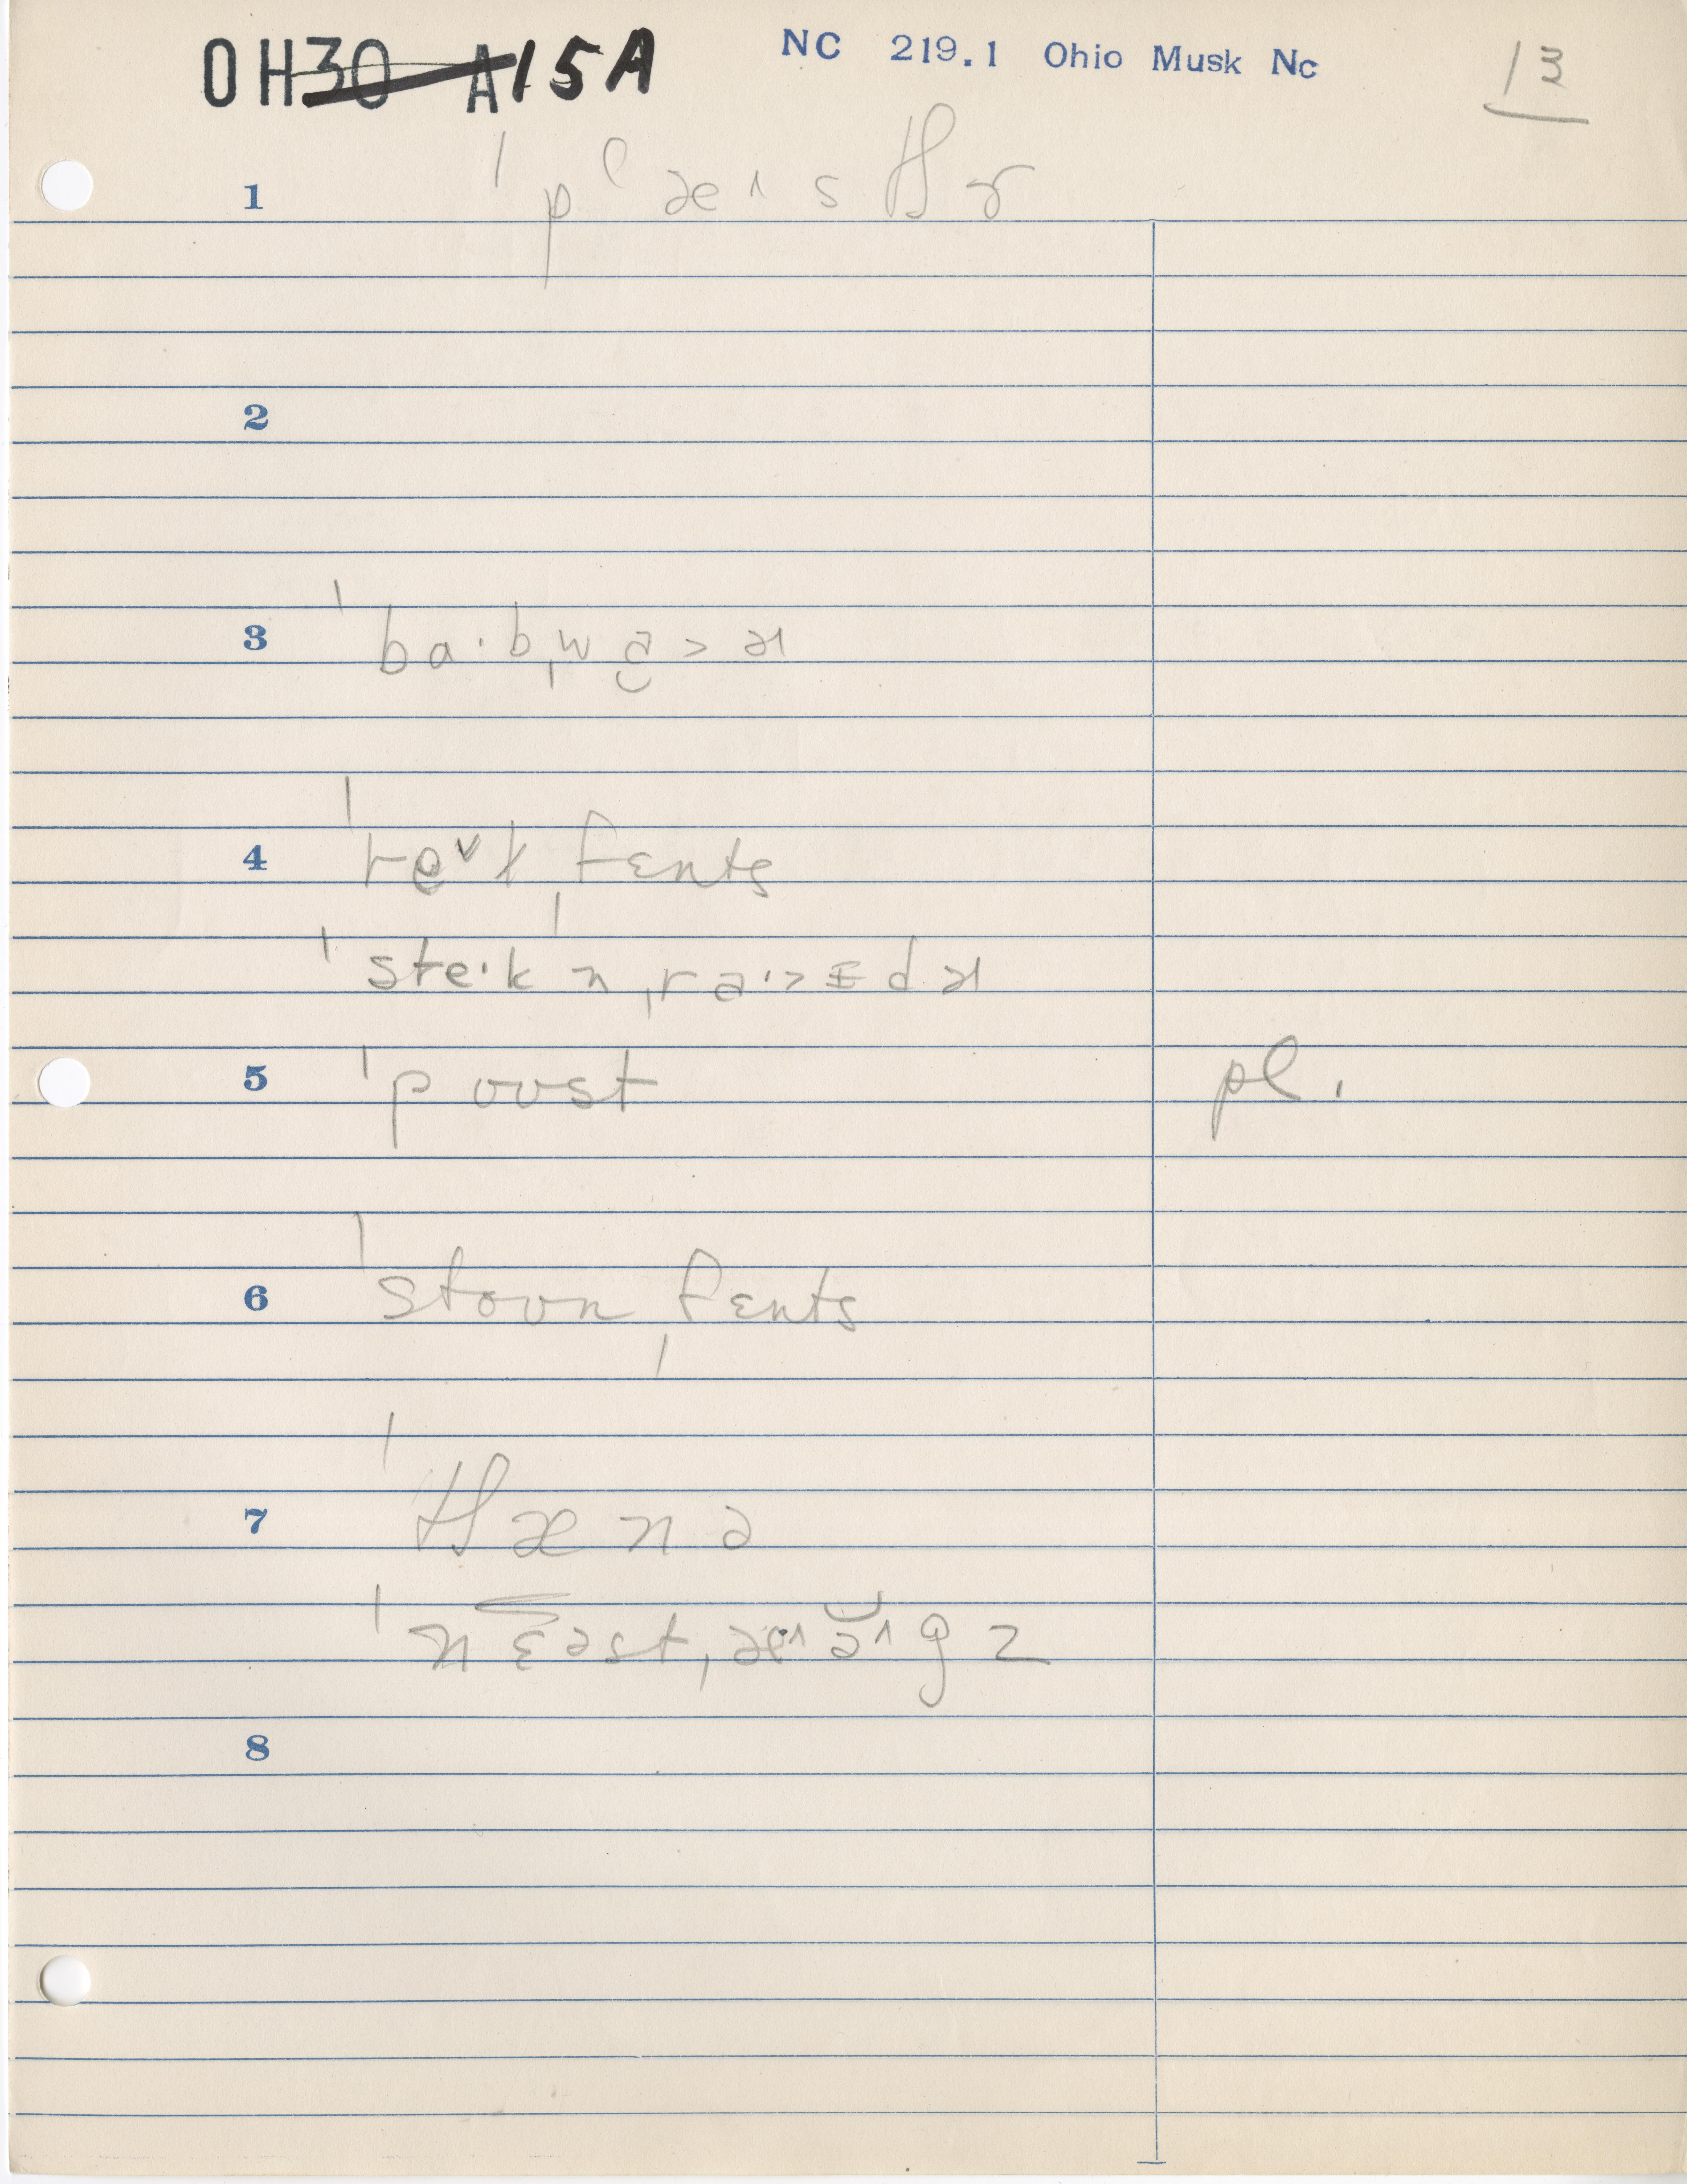 OH30 A15A NC 219.1 Ohio Musk Nc 13
1 ˈpʻæ˄stʃɚ
2
3 ˈba·bˌwa̯>ɪ
4 ˈreᵛlˌfɛnts
ˈste·knˌra·>ɪdɪ
5 ˈpoʊst pl.
6 ˈstoʊnˌfɛnts
7 ˈtʃænə
ˈnɛəstˌæ˄ə̆˄gz
8